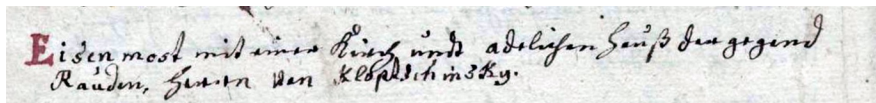 Eisenmost mit einer Kirch undt adelichen Hauß der gegend
Rauden, Herren von Kloptschinsky.